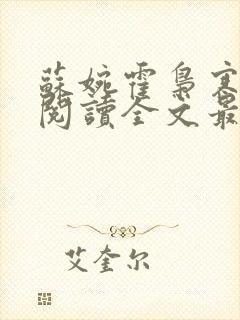 蘇婉霍梟寒
閱讀全文最
艾奎尔